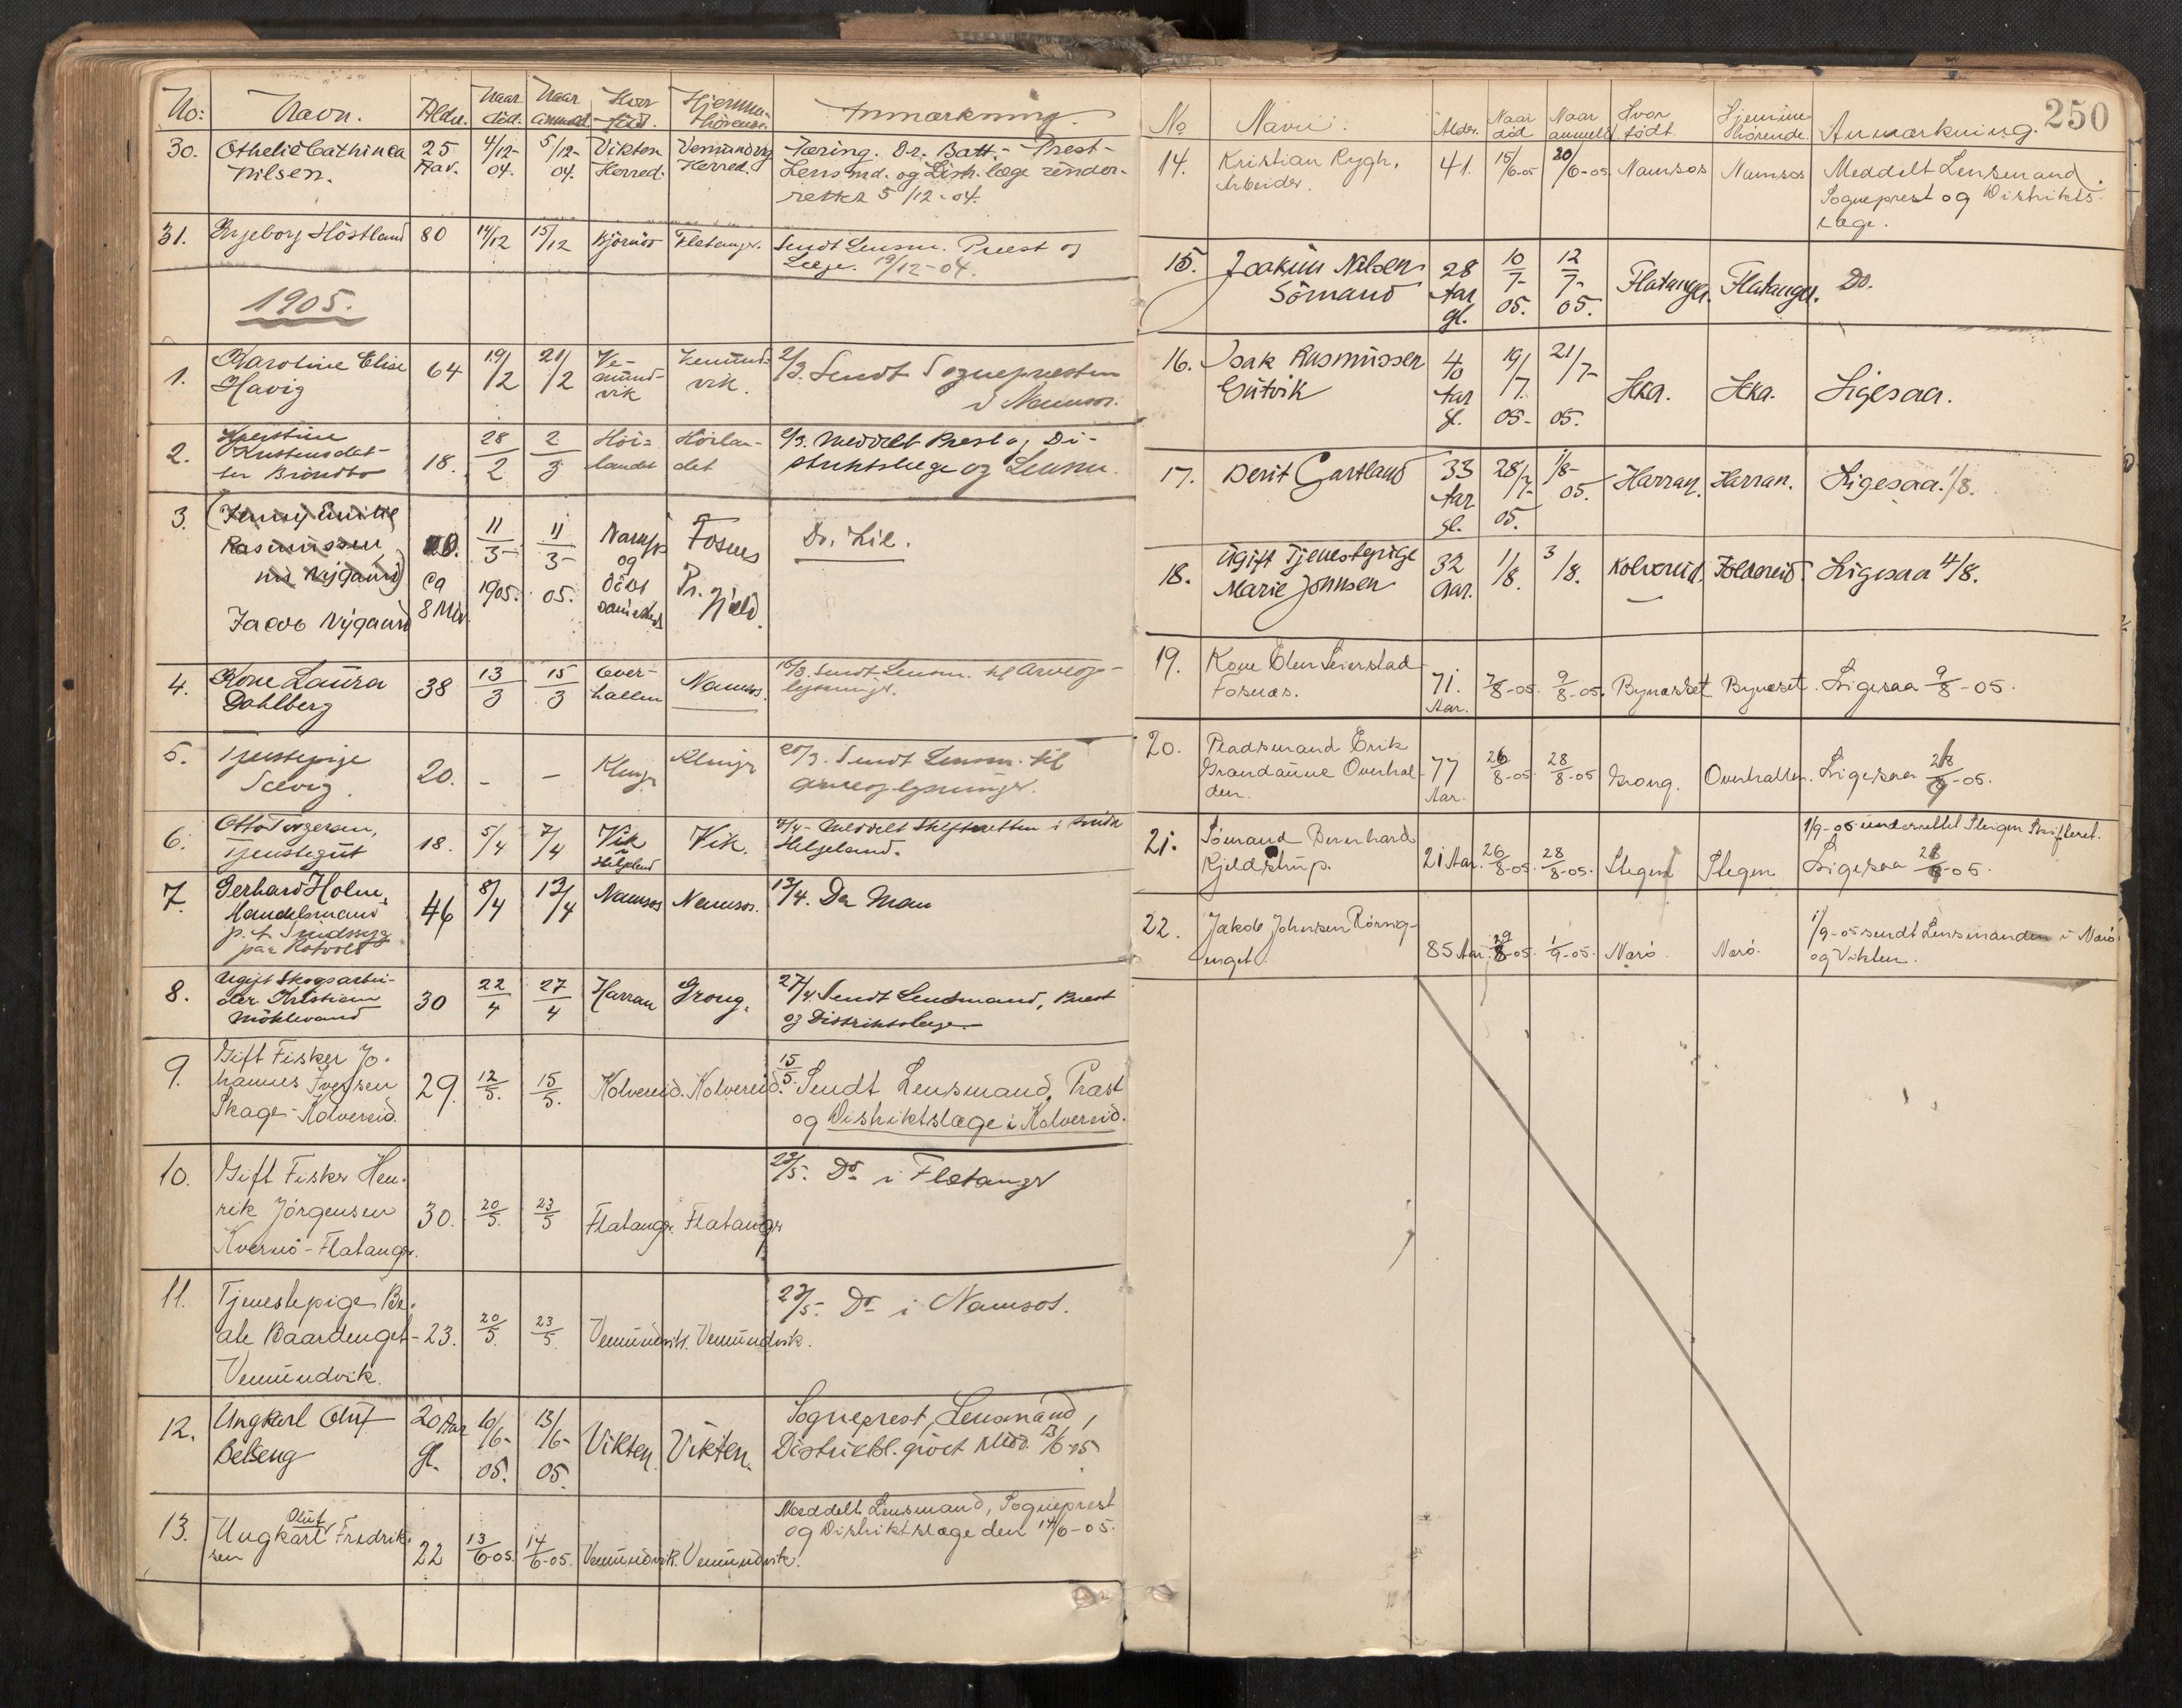 No: Navn. Alder. Naar død. Naar anmeld. Hvor født. Hjemme-hørende. Anmærkning.
30. Othelie Cathinca 25 4/12- 5/12- Vikten Vemundvig Batt.- Prest-
Nilsen. Aar. 04. 04. Herred. Herred. Lensmd. og Distr. læge under-
rettet 5/12-04.
31. Ingeborg Höstland 80 14/12 15/12 Björnör Flatanger. Sendt Lensm. Præst og
Læge. 19/12-04.
1905.
1. Karoline Elise 64 19/2 21/2 Ve- Vemund- 2/3. Sendt Sognepræsten
Havig mund- vik. i Namsos.
vik
2. Kjerstine 28/2 2/3 Höi- Höilan- 2/3. Meddelt Prest og Di-
Kristensdat- 18. landet det striktslæge og Lensm.
ter Bröndbo
3. (Jenny Emilie 11/3- 11/3- Namsos Fosnes Dr. Lie.
Rasmussen og
Nygaard) ca 1905. 05. død Pr. gjeld.
Jacob Nygaard 8 Mdr. sammesteds
4. Kone Laura 38 13/3 15/3 Over- Namsos. 15/3. Sendt Lensm. til Arveop-
Dahlberg hallen lysninger.
5. Tjenstepige 20. - - Klinge Klinge 20/3. Sendt Lensm. til
Selvig. arveoplysninger.
6. Otto Torgersen, 18. 5/4 7/4 Vik Vik. 7/4- Meddelt Skifteretten i Söndre
Tjenstegut i Helgeland Helgeland.
7. Gerhard Holm, 46 8/4 13/4 Namsos Namsos. 13/4. Da Man
Handelsmand
p.t. Sindssyg
paa Rotvold
8. Ugift Skogsarbei- 30 22/4 27/4 Harran Grong. 27/4 Sendt Lensmand, Prest
der Kristian og Distriktslæge.
Möklevand
9. Gift Fisker Jo- 15/5. Sendt Lensmand, Præst
hannes Iversen 29. 12/5. 15/5. Kolvereid. Kolvereid. og Distriktslæge i Kolvereid.
Skage-Kolvereid.
10. Gift Fisker Hen- 23/5. Do i Flatanger
rik Jörgensen 30. 20/5. 23/5 Flatangr. Flatangr
Kvernö-Flatangr.
11. Tjenestepige Be- 23/5. Do i Namsos.
ate Baardenget- 23. 20/5. 23/5 Vemundvik. Vemundvik.
Vemundvik.
12. Ungkarl Oluf 20 Aar 10/6- 13/6- Vikten. Vikten. Sogneprest, Lensmand,
Belseng gl. 05. 05. Distriktsl. givet Medd. 13/6 05
13. Ungkarl Oluf Fredrik- 22 13/6-05. 14/6-05. Vemundvik. Vemundvik. Meddelt Lensmand, Sogneprest
sen og Distriktslæge den 14/6-05.
250
No Navn. Alder. Naar død Naar anmeldt Hvor født. Hjemme hørende. Anmærkning.
14. Kristian Rygh, 41. 15/6-05 20/6-05 Namsos Namsos Meddelt Lensmand.
Arbeider. Sogneprest og Distrikts-
læge.
15. Joakim Nilsen 28 10/7- 12/7- Flatanger. Flatanger. Do.
Sömand Aar gl. 05. 05.
16. Isak Rasmussen 40 19/7. 21/7- Leka. Leka. Ligesaa.
Gutvik Aar gl. 05- 05.
17. Berit Gartland 33 28/7- 1/8- Harran. Harran. Ligesaa. 1/8.
Aar gl. 05. 05.
18. Ugift Tjenestepige 32 1/8. 3/8. Kolvereid. Kolvereid. Ligesaa 4/8.
Marie Johnsen Aar.
19. Kone Elen Seierstad 71. 7/8-05. 9/8-05. Bynæsset Bynæset. Ligesaa 9/8-05.
Fosnæs. Aar.
20. Pladsmand Erik 77 26/8-05. 28/8-05 Grong. Overhallen. Ligesaa 28/8-05.
Grandaune Overhal-
den. Aar.
1/9-05 underrettet Steigen Skifteret.
21. Sömand Bernhard 21 Aar. 26/8-05. 28/8-05. Stegen Stegen Ligesaa 28/8-05.
Kjeldstrup.
22. Jakob Johnsen Rörmyr- 85 Aar. 29/8-05. 1/9-05. Nærö. Nærö. 1/9-05 sendt Lensmanden i Nærö
enget og Vikten.